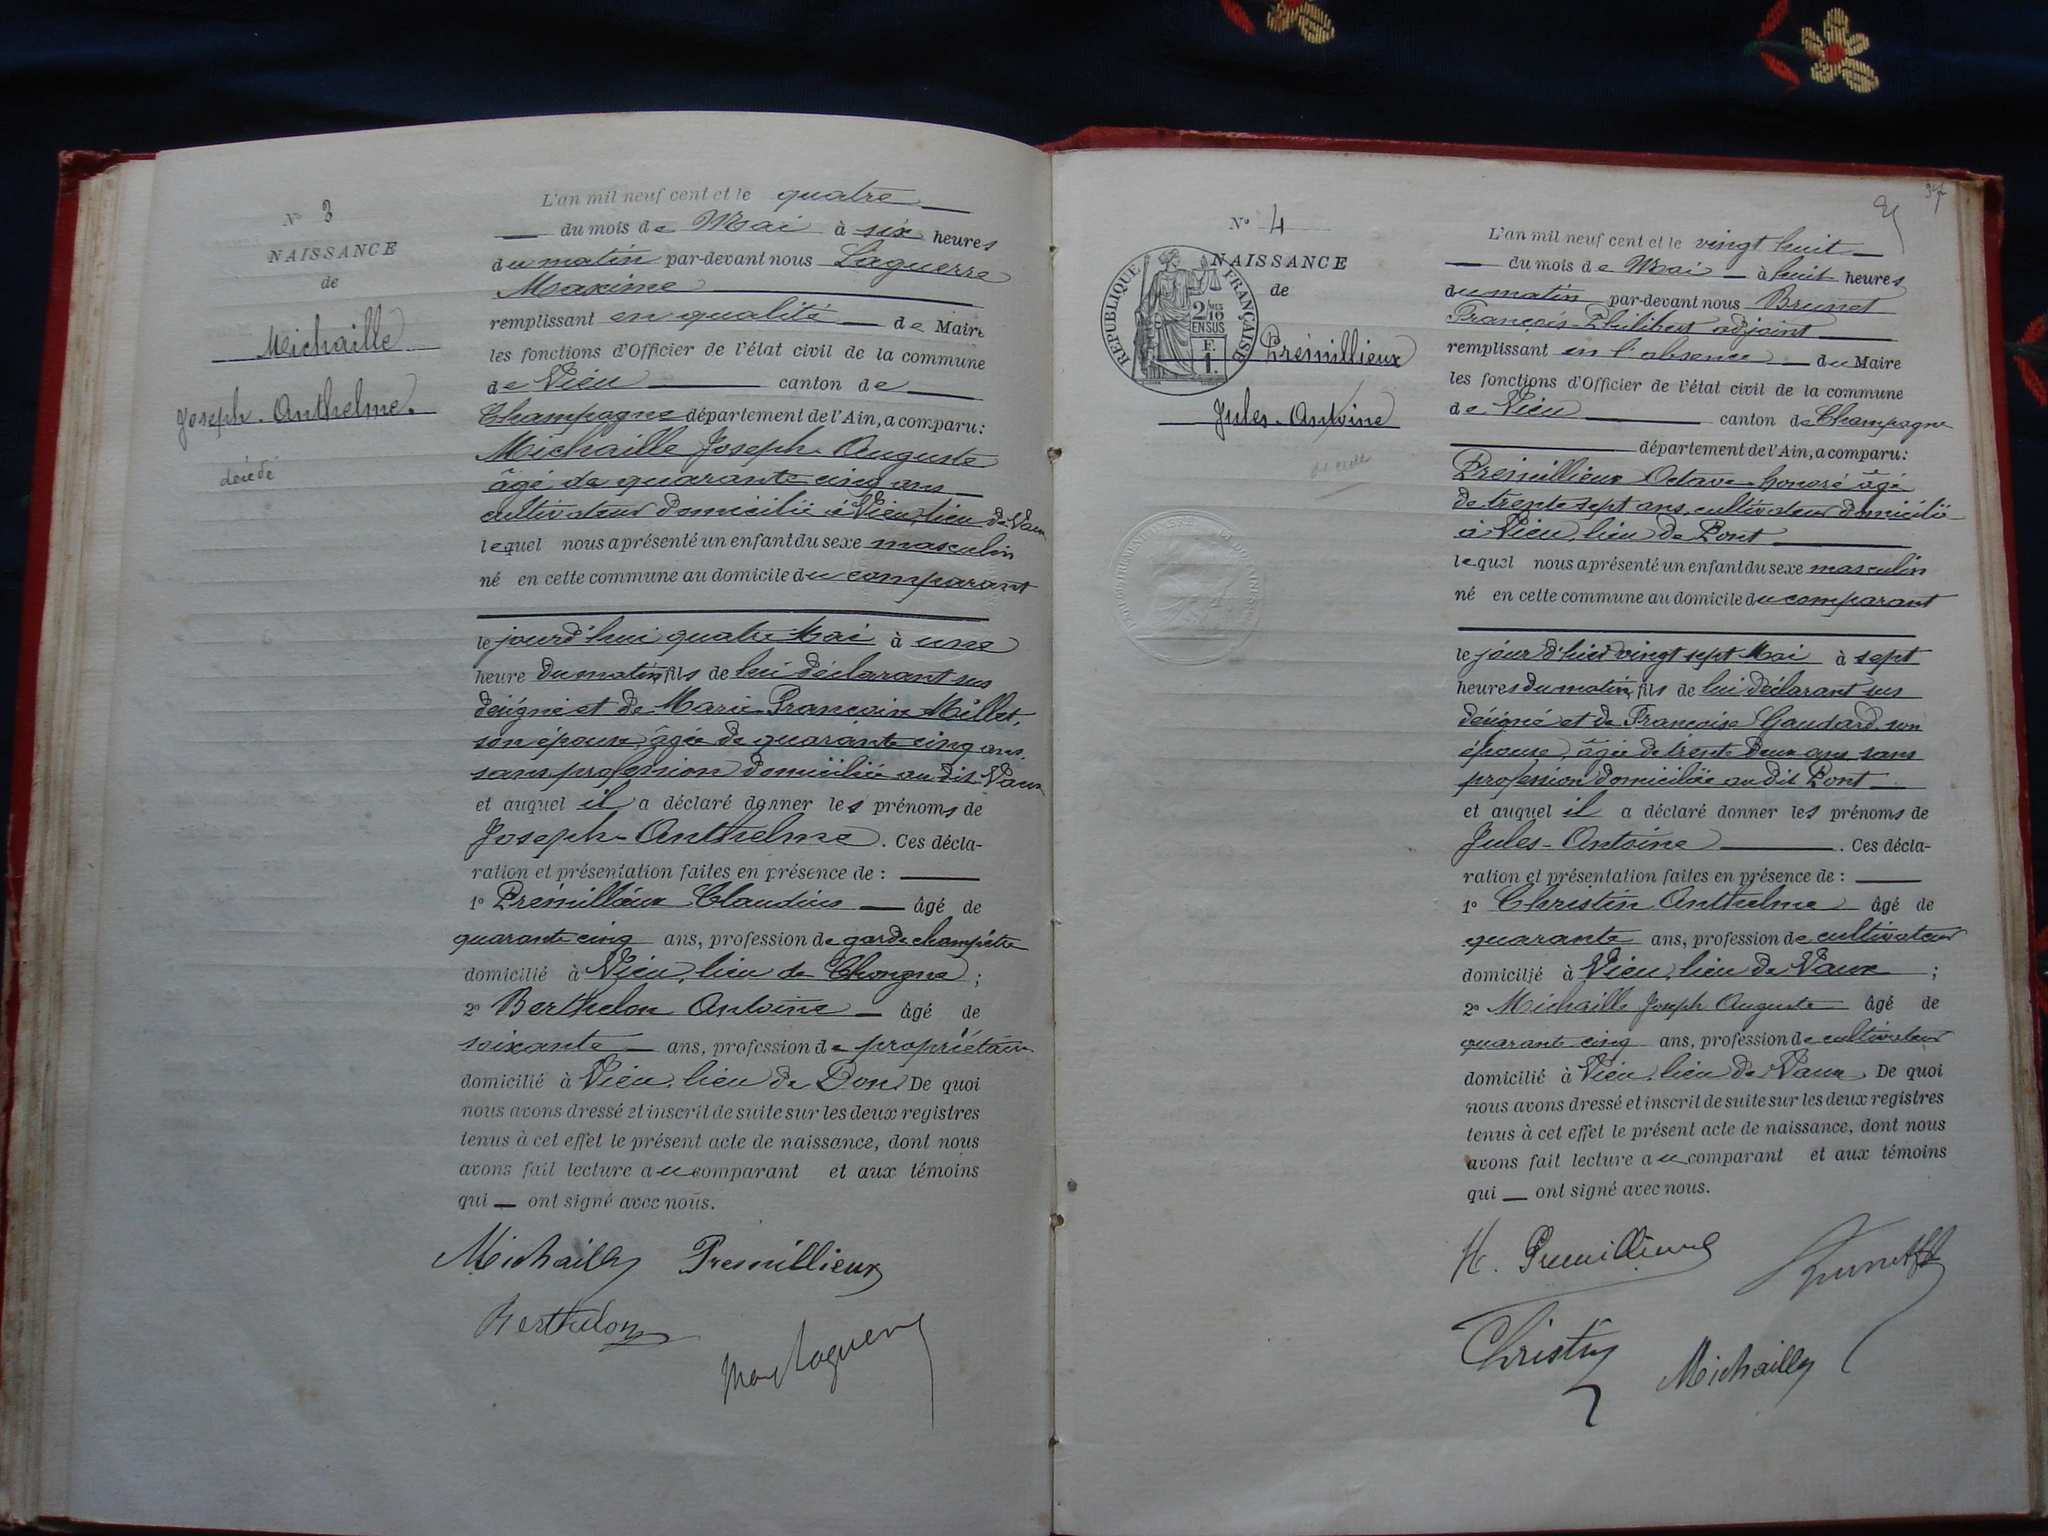 N° 3
NAISSANCE
de
Michaille
Joseph-Anthelme.
décédé
L'an mil neuf cent et le quatre
du mois de Mai à six heures
du matin par-devant nous Laguerre
Maxime
remplissant en qualité de Maire
les fonctions d'Officier de l'état civil de la commune
de Vieu canton de
Champagne département de l'Ain, a comparu:
Michaille Joseph-Auguste
âgé de quarante cinq ans
cultivateur domicilié à Vieu, lieu de Vaux
lequel nous a présenté un enfant du sexe masculin
né en cette commune au domicile du comparant
le jourd'hui quatre Mai à une
heure du matin, fils de lui déclarant sus
désigné et de Marie Françoise Millet,
son épouse, âgée de quarante cinq ans
sans profession domiciliée au dit Vaux
et auquel il a déclaré donner les prénoms de
Joseph-Anthelme. Ces décla-
ration et présentation faites en présence de:
1° Prémillieux Claudius âgé de
quarante cinq ans, profession de garde champêtre
domicilié à Vieu, lieu de Chongne;
2° Berthelon Antoine âgé de
soixante ans, profession de propriétaire
domicilié à Vieu, lieu de Don. De quoi
nous avons dressé et inscrit de suite sur les deux registres
tenus à cet effet le présent acte de naissance, dont nous
avons fait lecture au comparant et aux témoins
qui ont signé avec nous.
Michaille Premillieux
Berthelon
Max Laguerre
37
N° 4
NAISSANCE
de
RÉPUBLIQUE FRANÇAISE
2/10 EN SUS
F. 1.
Premillieux
Jules-Antoine
L'an mil neuf cent et le vingt huit
du mois de Mai à huit heures
du matin par-devant nous Brunet
François-Philibert adjoint
remplissant en l'absence du Maire
les fonctions d'Officier de l'état civil de la commune
de Vieu canton de Champagne
département de l'Ain, a comparu:
Premillieux Octave-honoré âgé
de trente sept ans, cultivateur domicilié
à Vieu, lieu de Pont
lequel nous a présenté un enfant du sexe masculin
né en cette commune au domicile du comparant
le jour d'hier vingt sept Mai à sept
heures du matin, fils de lui déclarant sus
désigné et de Françoise Gaudard son
épouse, âgée de trente deux ans sans
profession domiciliée au dit Pont
et auquel il a déclaré donner les prénoms de
Jules-Antoine. Ces décla-
ration et présentation faites en présence de:
1° Christin Anthelme âgé de
quarante ans, profession de cultivateur
domicilié à Vieu, lieu de Vaux;
2° Michaille Joseph Auguste âgé de
quarante cinq ans, profession de cultivateur
domicilié à Vieu, lieu de Vaux. De quoi
nous avons dressé et inscrit de suite sur les deux registres
tenus à cet effet le présent acte de naissance, dont nous
avons fait lecture au comparant et aux témoins
qui ont signé avec nous.
H. Premillieux Brunet
Christin Michaille